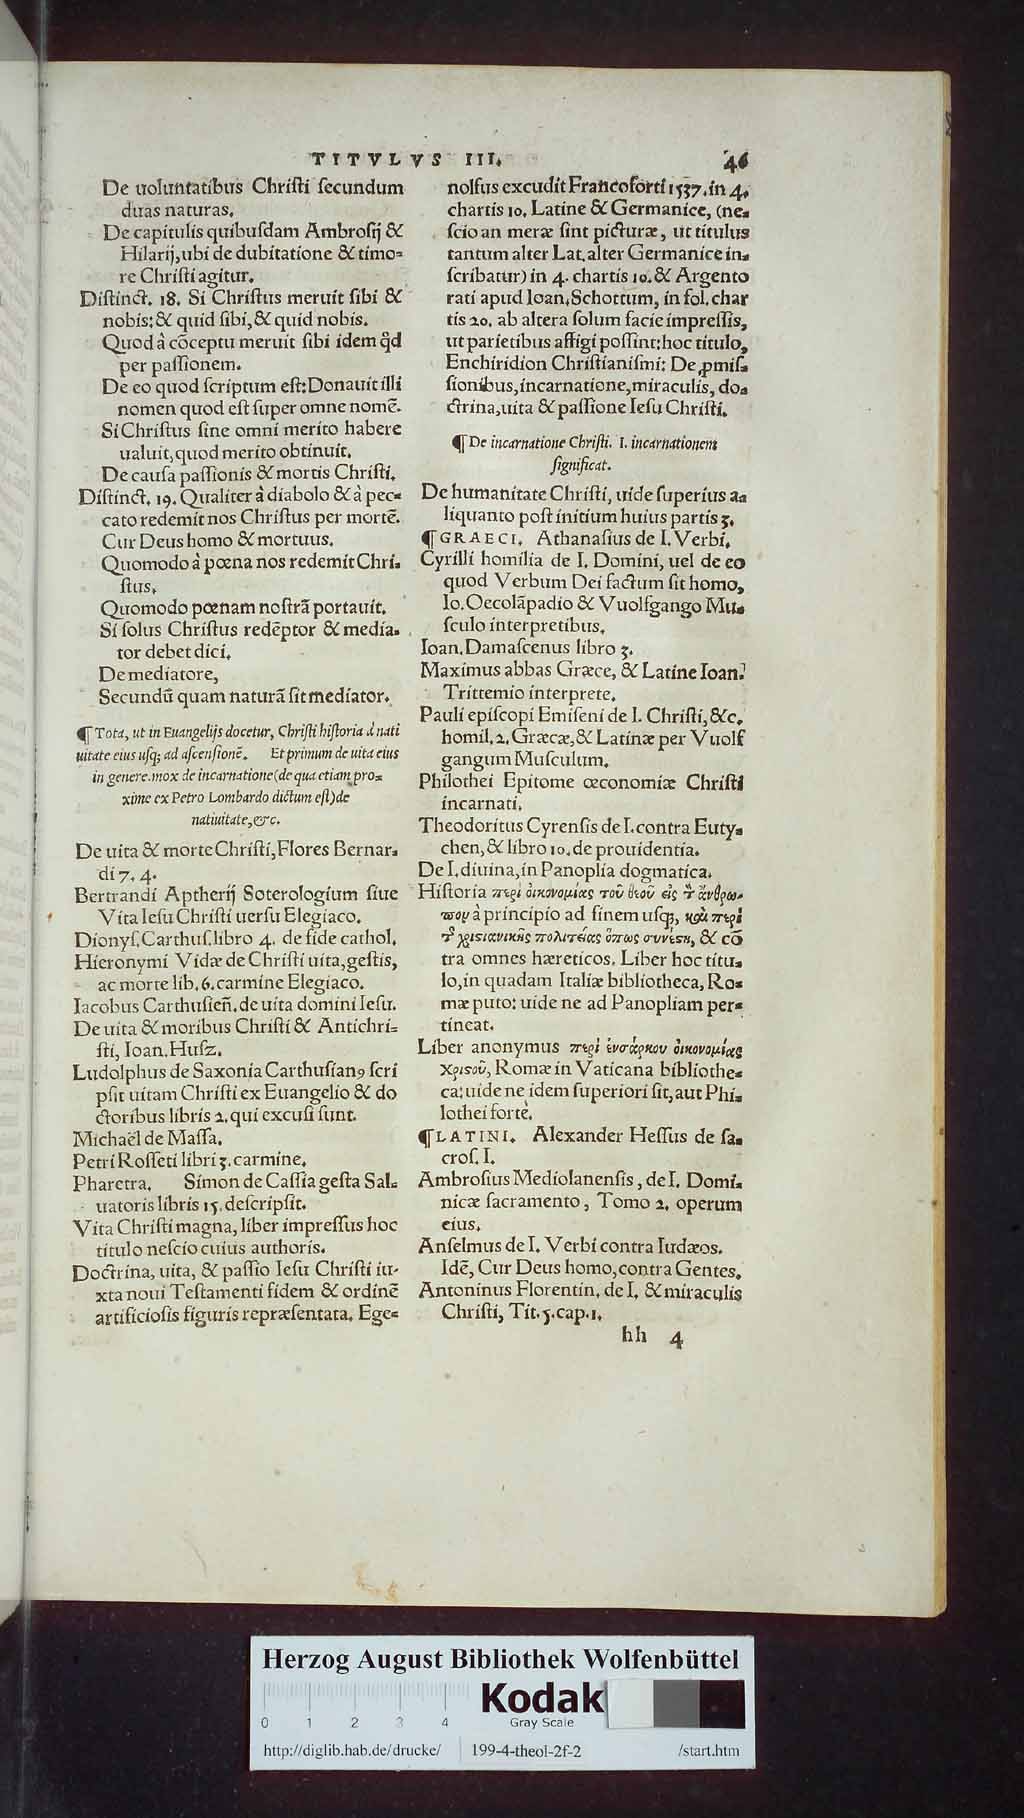 TITVLVS III. 46
De uoluntatibus Chriſti ſecundum
duas naturas.
De capitulis quibuſdam Ambroſij &
Hilarij, ubi de dubitatione & timo-
re Chriſti agitur.
Diſtinct. 18. Si Chriſtus meruit ſibi &
nobis: & quid ſibi, & quid nobis.
Quod à cōceptu meruit ſibi idem qđ
per paſſionem.
De eo quod ſcriptum eſt: Donauit illi
nomen quod eſt ſuper omne nomē.
Si Chriſtus ſine omni merito habere
ualuit, quod merito obtinuit.
De cauſa paſſionis & mortis Chriſti.
Diſtinct. 19. Qualiter à diabolo & à pec-
cato redemit nos Chriſtus per mortē.
Cur Deus homo & mortuus.
Quomodo à pœna nos redemit Chri-
ſtus.
Quomodo pœnam noſtrā portauit.
Si ſolus Chriſtus redēptor & media-
tor debet dici.
De mediatore,
Secundū quam naturā ſit mediator.
¶ Tota, ut in Euangelijs docetur, Chriſti hiſtoria à nati
uitate eius uſq; ad aſcenſionē. Et primum de uita eius
in genere. mox de incarnatione (de qua etiam pro-
xime ex Petro Lombardo dictum eſt) de
natiuitate, &c.
De uita & morte Chriſti, Flores Bernar-
di 7. 4.
Bertrandi Aptherij Soterologium ſiue
Vita Ieſu Chriſti uerſu Elegiaco.
Dionyſ. Carthuſ. libro 4. de fide cathol.
Hieronymi Vidæ de Chriſti uita, geſtis,
ac morte lib. 6. carmine Elegiaco.
Iacobus Carthuſieñ. de uita domini Ieſu.
De uita & moribus Chriſti & Antichri-
ſti, Ioan. Huſz.
Ludolphus de Saxonia Carthuſianꝰ ſcri
pſit uitam Chriſti ex Euangelio & do
ctoribus libris 2. qui excuſi ſunt.
Michaël de Maſſa.
Petri Roſſeti libri 3. carmine.
Pharetra. Simon de Caſſia geſta Sal-
uatoris libris 15. deſcripſit.
Vita Chriſti magna, liber impreſſus hoc
titulo neſcio cuius authoris.
Doctrina, uita, & paſſio Ieſu Chriſti iu-
xta noui Teſtamenti fidem & ordinē
artificioſis figuris repræſentata. Ege-
nolfus excudit Francoforti 1537. in 4.
chartis 10. Latine & Germanice, (ne-
ſcio an meræ ſint picturæ, ut titulus
tantum alter Lat. alter Germanice in-
ſcribatur) in 4. chartis 10. & Argento
rati apud Ioan. Schottum, in fol. char
tis 20. ab altera ſolum facie impreſſis,
ut parietibus affigi poſſint: hoc titulo,
Enchiridion Chriſtianiſmi: De ꝓmiſ-
ſionibus, incarnatione, miraculis, do-
ctrina, uita & paſſione Ieſu Chriſti.
¶ De incarnatione Chriſti. I. incarnationem
ſignificat.
De humanitate Chriſti, uide ſuperius a-
liquanto poſt initium huius partis 3.
¶ GRAECI. Athanaſius de I. Verbi.
Cyrilli homilia de I. Domini, uel de eo
quod Verbum Dei factum ſit homo,
Io. Oecolāpadio & Vuolfgango Mu-
ſculo interpretibus.
Ioan. Damaſcenus libro 3.
Maximus abbas Græce, & Latine Ioan.
Trittemio interprete.
Pauli epiſcopi Emiſeni de I. Chriſti, &c.
homil. 2. Græcæ, & Latinæ per Vuolf
gangum Muſculum.
Philothei Epitome œconomiæ Chriſti
incarnati.
Theodoritus Cyrenſis de I. contra Euty-
chen, & libro 10. de prouidentia.
De I. diuina, in Panoplia dogmatica.
Hiſtoria περὶ οἰκονομίας τοῦ θεοῦ εἰς τὸν ἄνθρω-
πον à principio ad finem uſq;, καὶ περὶ
τῆς χριστιανικῆς πολιτείας ὅπως συνέστη, & cō
tra omnes hæreticos. Liber hoc titu-
lo, in quadam Italiæ bibliotheca, Ro-
mæ puto: uide ne ad Panopliam per-
tineat.
Liber anonymus περὶ ἐνσάρκου οἰκονομίας
Χριστοῦ, Romæ in Vaticana bibliothe-
ca: uide ne idem ſuperiori ſit, aut Phi-
lothei fortè.
¶ LATINI. Alexander Heſſus de ſa-
croſ. I.
Ambroſius Mediolanenſis, de I. Domi-
nicæ ſacramento, Tomo 2. operum
eius.
Anſelmus de I. Verbi contra Iudæos.
Idē, Cur Deus homo, contra Gentes.
Antoninus Florentin. de I. & miraculis
Chriſti, Tit. 5. cap. 1.
hh 4
Herzog August Bibliothek Wolfenbüttel
Kodak
Gray Scale
0 1 2 3 4
http://diglib.hab.de/drucke/ 199-4-theol-2f-2 /start.htm